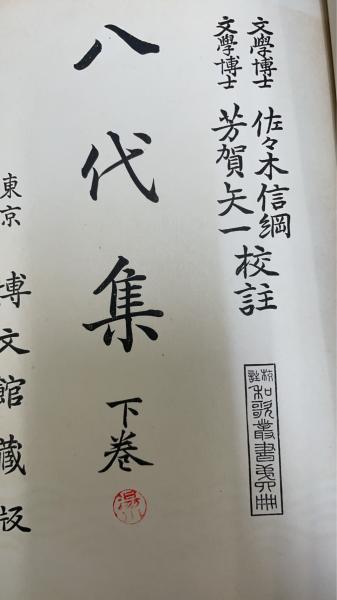 文學博士 佐々木信綱
文學博士 芳賀矢一
校註
校註
和歌叢書第六冊
八代集
下巻
東京 博文館藏版